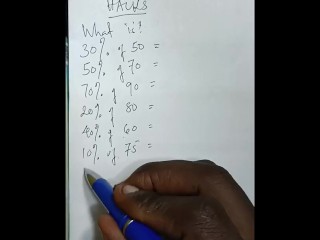 HACKS
What is?
30% of 50 =
50% of 70 =
70% of 90 =
20% of 80 =
40% of 60 =
10% of 75 =